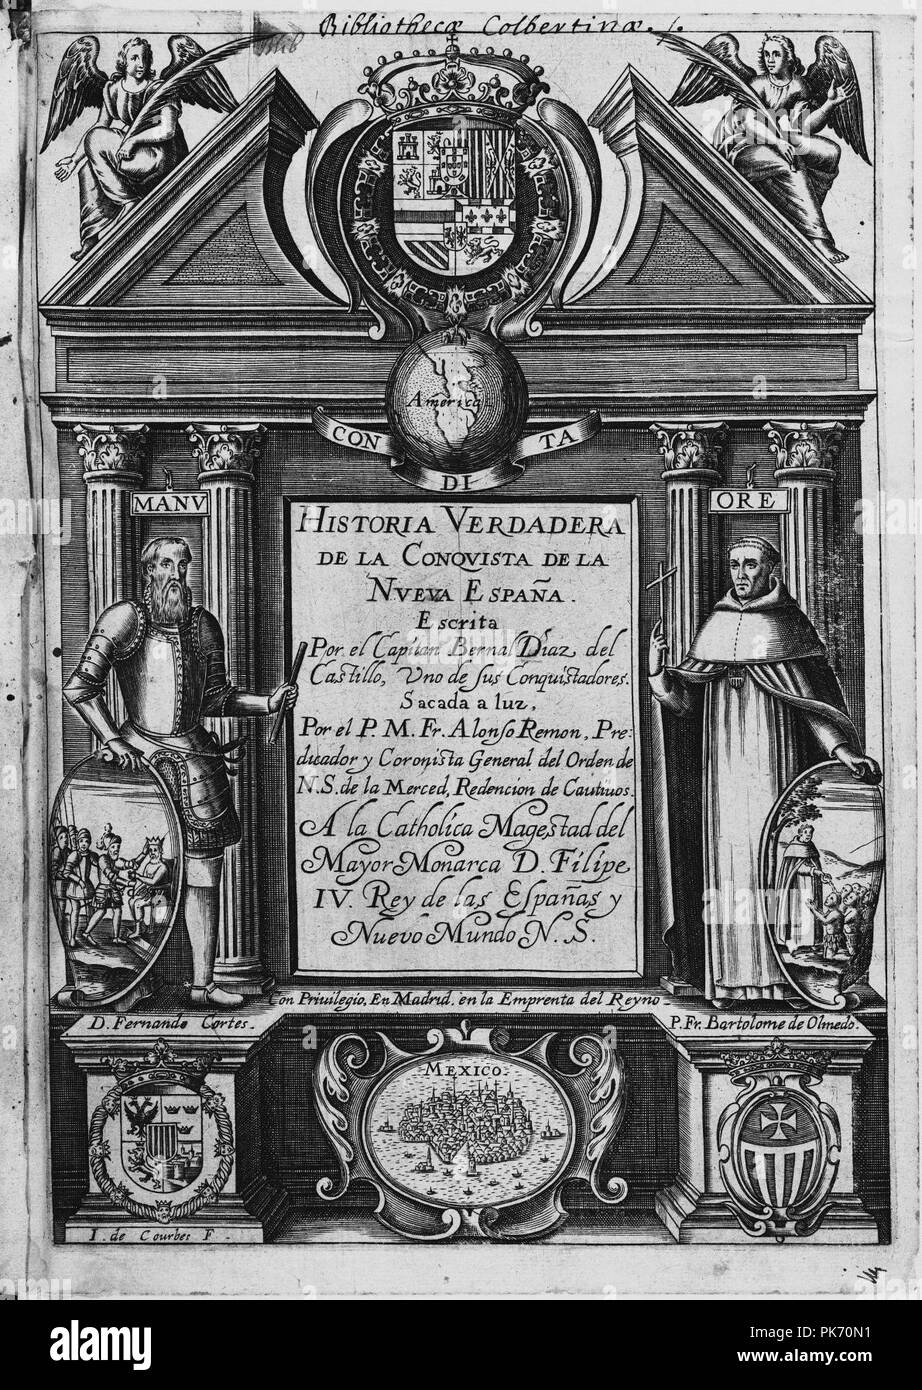 Bibliothecæ Colbertinæ.
America
CON DI TA
MANV
ORE
HISTORIA VERDADERA
DE LA CONQVISTA DE LA
NVEVA ESPAÑA.
Escrita
Por el Capitan Bernal Diaz del
Castillo, Vno de sus Conquistadores.
Sacada a luz,
Por el P. M. Fr. Alonso Remon, Pre-
dicador y Coronista General del Orden de
N. S. de la Merced, Redencion de Cautiuos.
A la Catholica Magestad del
Mayor Monarca D. Filipe
IV. Rey de las Españas y
Nuevo Mundo N. S.
Con Priuilegio, En Madrid. en la Emprenta del Reyno
D. Fernando Cortes.
P. Fr. Bartolome de Olmedo.
MEXICO
I. de Courbes F.
alamy stock photo
PK70N1
www.alamy.com